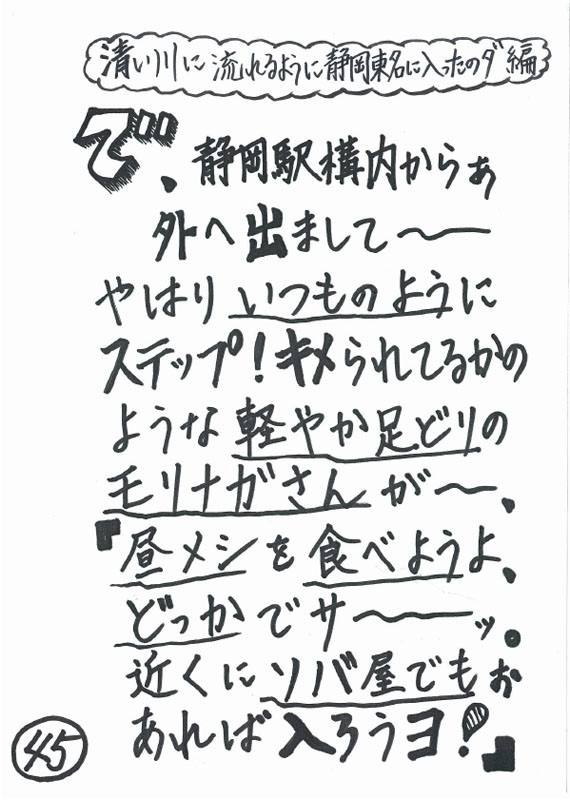 清い川に流れるように静岡東名に入ったのダ編
で、静岡駅構内からぁ
外へ出まして〜
やはりいつものように
ステップ!キメられてるかの
ような軽やか足どりの
モリナガさんが〜、
『昼メシを食べようよ、
どっかでサ〜ッ。
近くにソバ屋でもぉ
あれば入ろうヨ!』
45